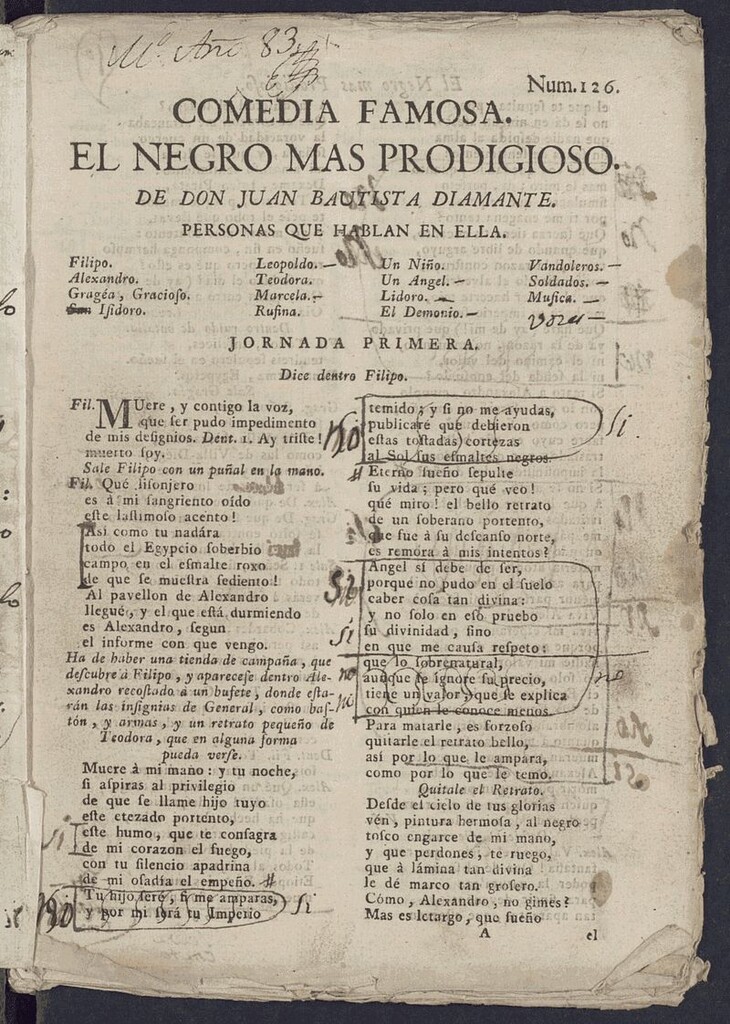 Mᵒ. Año 83
Num. 126.
COMEDIA FAMOSA.
EL NEGRO MAS PRODIGIOSO.
DE DON JUAN BAUTISTA DIAMANTE.
PERSONAS QUE HABLAN EN ELLA.
Filipo. Leopoldo. Un Niño. Vandoleros.
Alexandro. Teodora. Un Angel. Soldados.
Gragéa, Gracioſo. Marcela. Lidoro. Muſica.
San Iſidoro. Ruſina. El Demonio.
JORNADA PRIMERA.
Dice dentro Filipo.
Fil. MUere, y contigo la voz,
que ſer pudo impedimento
de mis deſignios. Dent. 1. Ay triſte!
muerto ſoy.
Sale Filipo con un puñal en la mano.
Fil. Qué liſonjero
es á mi ſangriento oído
eſte laſtimoſo acento!
Asi como tu nadára
todo el Egypcio ſoberbio
campo en el eſmalte roxo
de que ſe mueſtra ſediento!
Al pavellon de Alexandro
llegué, y el que eſtá durmiendo
es Alexandro, ſegun
el informe con que vengo.
Ha de haber una tienda de campaña, que
deſcubre á Filipo, y apareceſe dentro Ale-
xandro recoſtado á un bufete, donde eſta-
rán las inſignias de General, como baſ-
tón, y armas, y un retrato pequeño de
Teodora, que en alguna forma
pueda verſe.
Muere à mi mano: y tu noche,
ſi aſpiras al privilegio
de que ſe llame hijo tuyo
eſte etezado portento,
si
eſte humo, que te conſagra
de mi corazon el fuego,
con tu ſilencio apadrina
de mi oſadía el empeño.
no
Tu hijo ſeré, ſi me amparas,
si
y por mi ſerá tu Imperio
temido; y ſi no me ayudas,
si
publicaré que debieron
no
eſtas toſtadas cortezas
al Sol ſus eſmaltes negros.
Eterno ſueño ſepulte
ſu vida; pero qué veo!
qué miro! el bello retrato
de un ſoberano portento,
que fue á ſu deſcanſo norte,
es remora á mis intentos?
Angel sí debe de ſer,
si
porque no pudo en el ſuelo
caber coſa tan divina:
y no ſolo en eſo pruebo
ſu divinidad, ſino
si
en que me cauſa reſpeto:
que lo ſobrenatural,
no
aunque ſe ignore ſu precio,
no
tiene un valor, que ſe explica
no
con quien le conoce menos.
Para matarle, es forzoſo
quitarle el retrato bello,
así por lo que le ampara,
como por lo que le temo.
Quitale el Retrato.
Deſde el cielo de tus glorias
vén, pintura hermoſa, al negro
toſco engarce de mi mano,
y que perdones, te ruego,
que à lámina tan divina
le dé marco tan groſero.
Cómo, Alexandro, no gimes?
Mas es letargo, que ſueño
A el